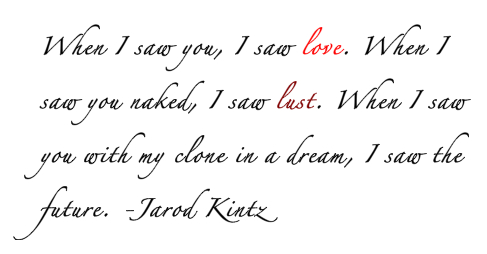 When I saw you, I saw love. When I
saw you naked, I saw lust. When I saw
you with my clone in a dream, I saw the
future. -Jarod Kintz